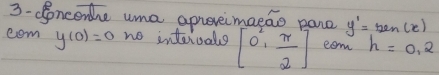 3-Encontre uma aproximação para y' = sen(x)
com y(0)=0 no intervalo [0, π/2] com h = 0,2